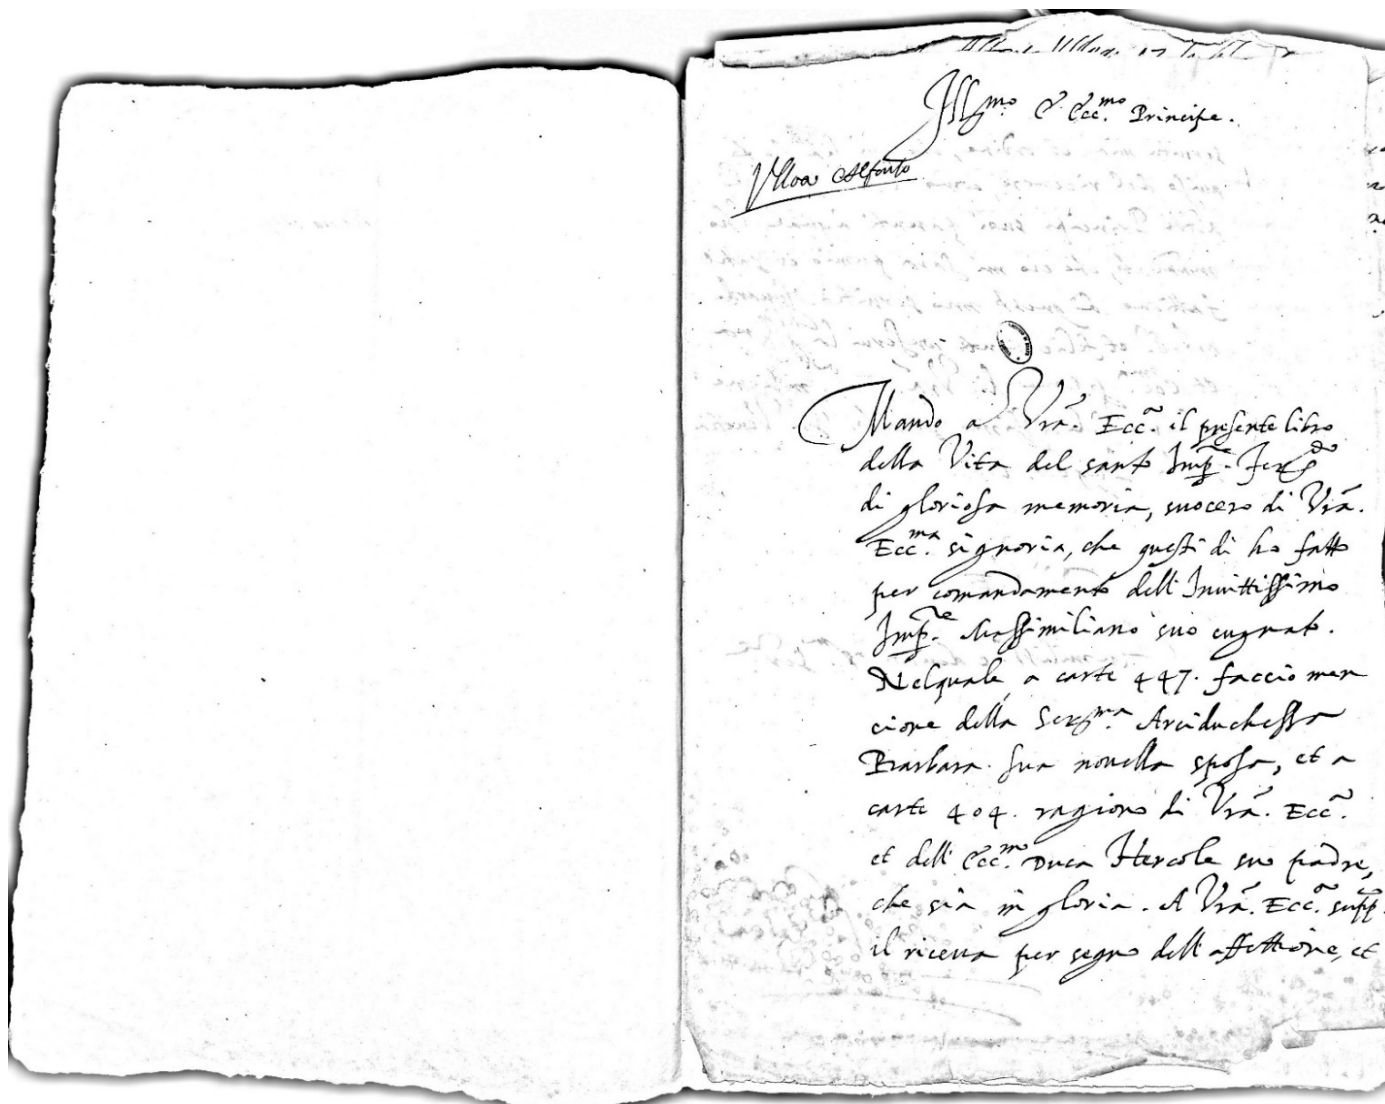 Ill.mo & Ecc.mo Principe.
Ulloa Alfonso
Mando a Vrã. Eccã. il presente libro
della Vita del santo Imp.re Fer.do
di gloriosa memoria, suocero di Vrã.
Ecc.ma signoria, che questi di ho fatto
per comandamento dell' Invittissimo
Imp.re Massimiliano suo cugnato.
Nelquale, a carte 447. faccio men
cione della Ser.ma Arciduchessa
Barbara. sua novella sposa, et a
carte 404. ragiono di Vrã. Eccã.
et dell' Ecc.mo Duca Hercole suo padre,
che sia in gloria. A Vrã. Eccã. supp.
il riceva per segno dell' affettione, et